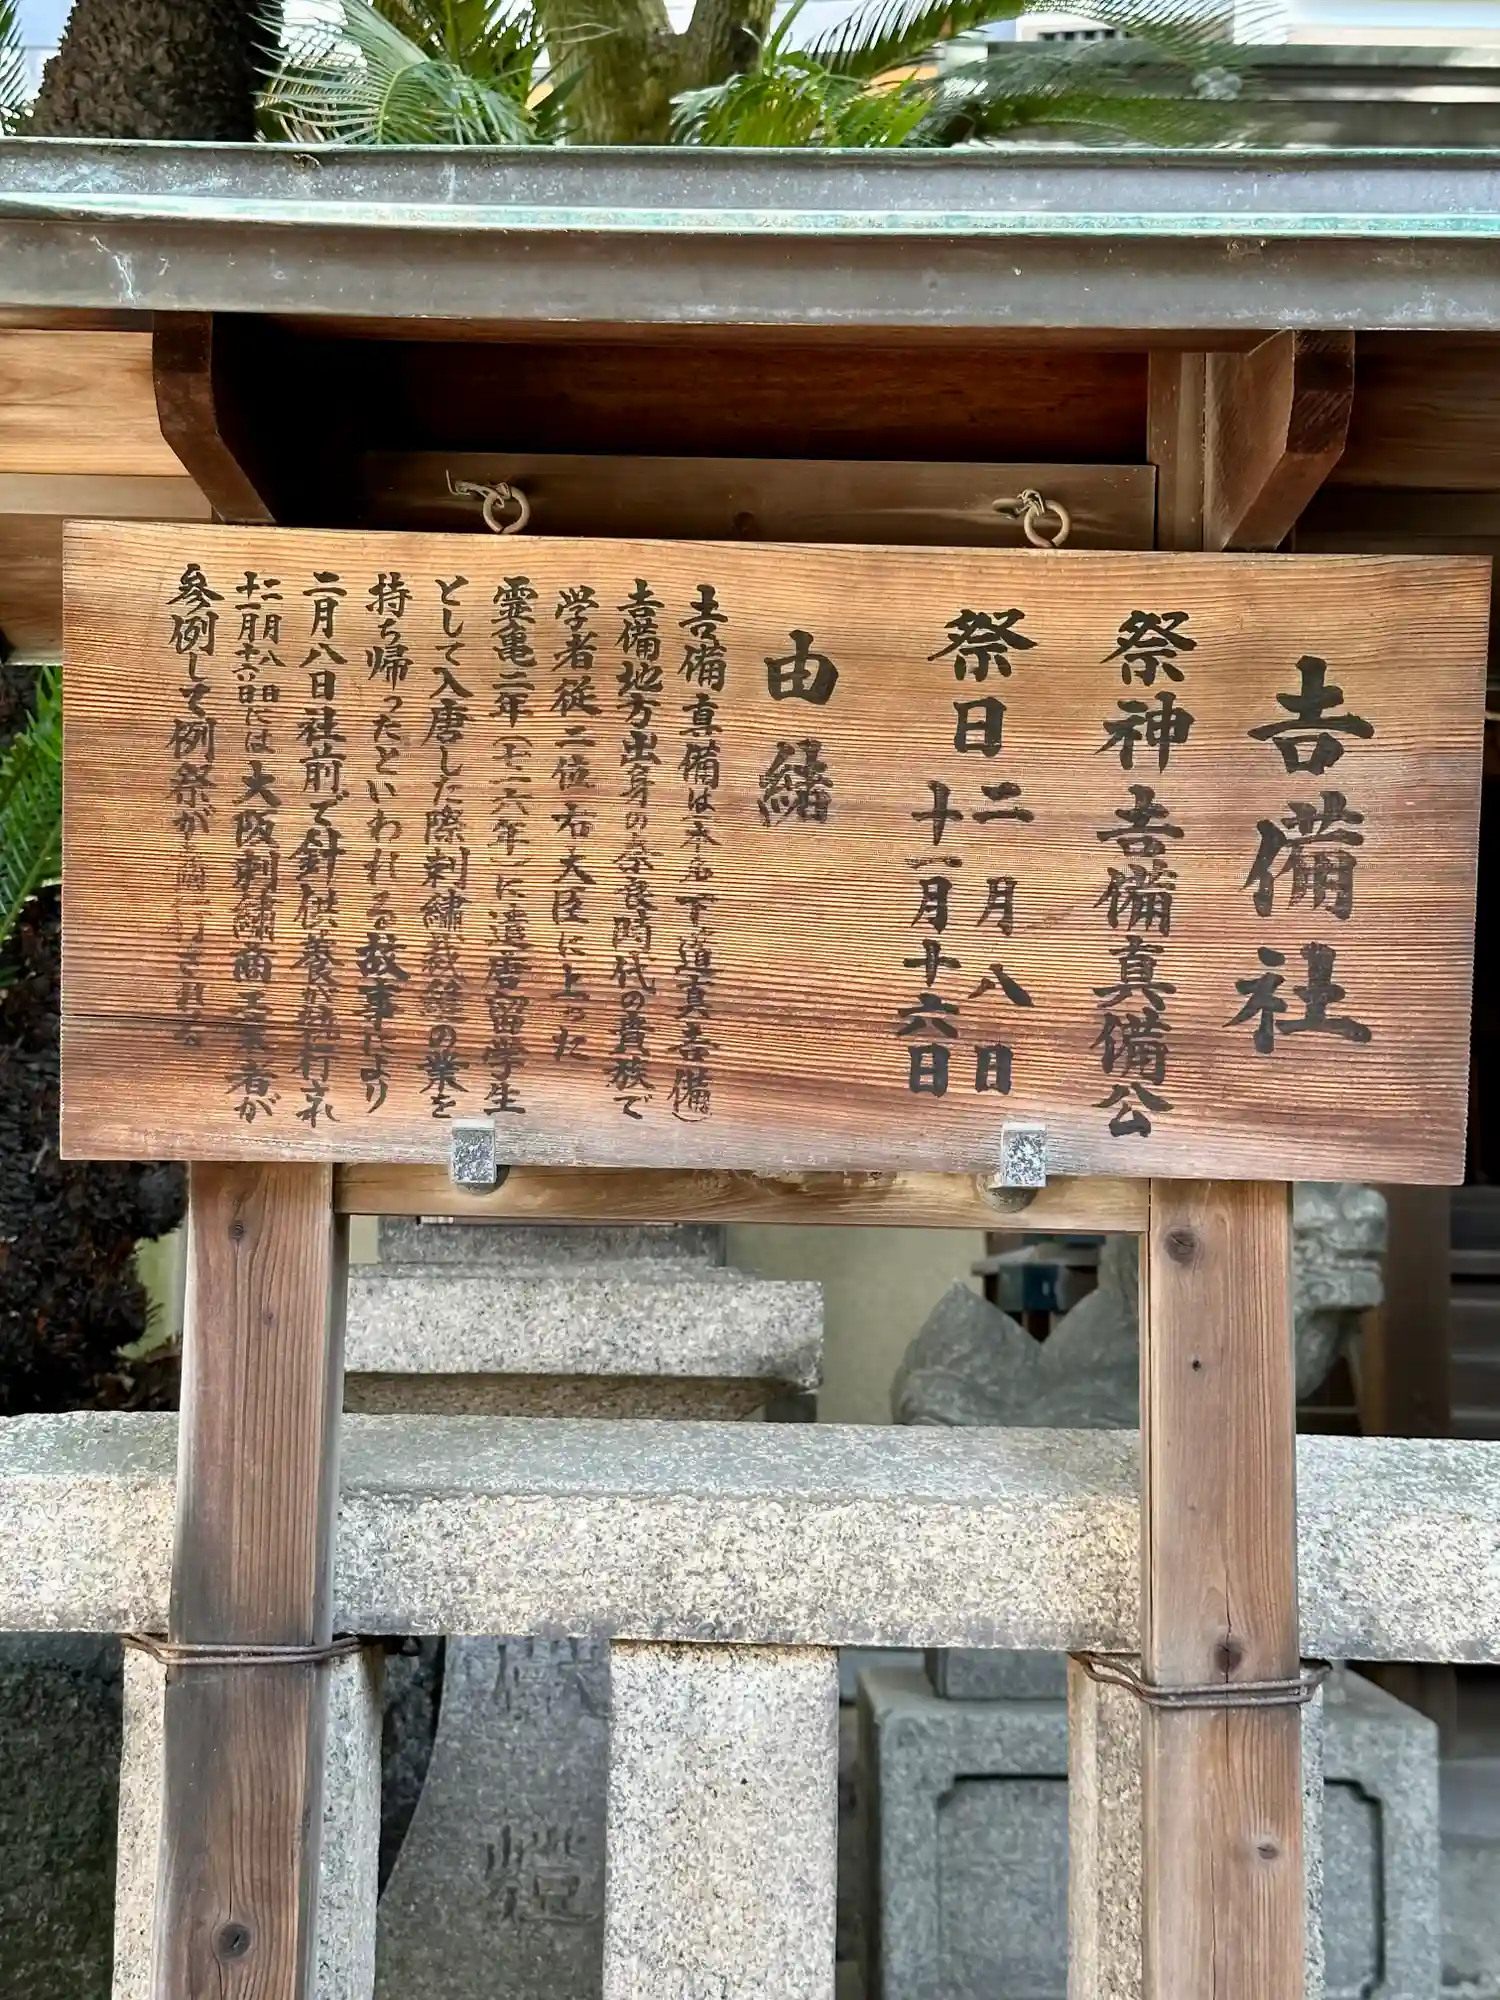 吉備社
祭神 吉備真備公
祭日 二月八日
十一月十六日
由緒
吉備真備は本名(下道真吉備)
吉備地方出身の奈良時代の貴族で
学者従二位右大臣に上った
霊亀二年(七一六年)に遣唐留学生
として入唐した際刺繍裁縫の業を
持ち帰ったといわれる故事により
二月八日社前で針供養が執行され
二月八日
十一月十六日には大阪刺繍商工業者が
参例して例祭が執行される